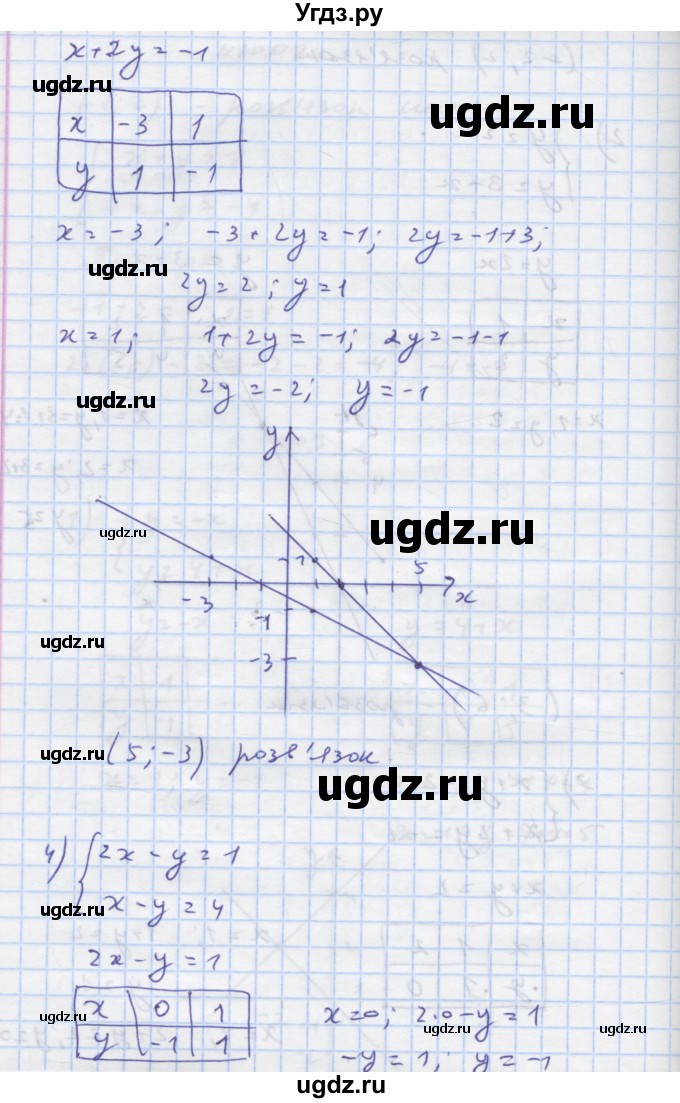 Угдз.ру
x + 2y = -1
ugdz.ru
ugdz.ru
x -3 1
y 1 -1
x = -3; -3 + 2y = -1; 2y = -1+3;
ugdz.ru
2y = 2; y = 1
x = 1; 1 + 2y = -1; 2y = -1-1
ugdz.ru
2y = -2; y = -1
y
ugdz.ru
ugdz.ru
1
5
-3
x
-1
ugdz.ru
-3
ugdz.ru
(5; -3) розв'язок
ugdz.ru
4) { 2x - y = 1
ugdz.ru
x - y = 4
2x - y = 1
x 0 1
y -1 1
ugdz.ru
x=0; 2·0 - y = 1
ugdz.ru
-y = 1; y = -1
ugdz.ru